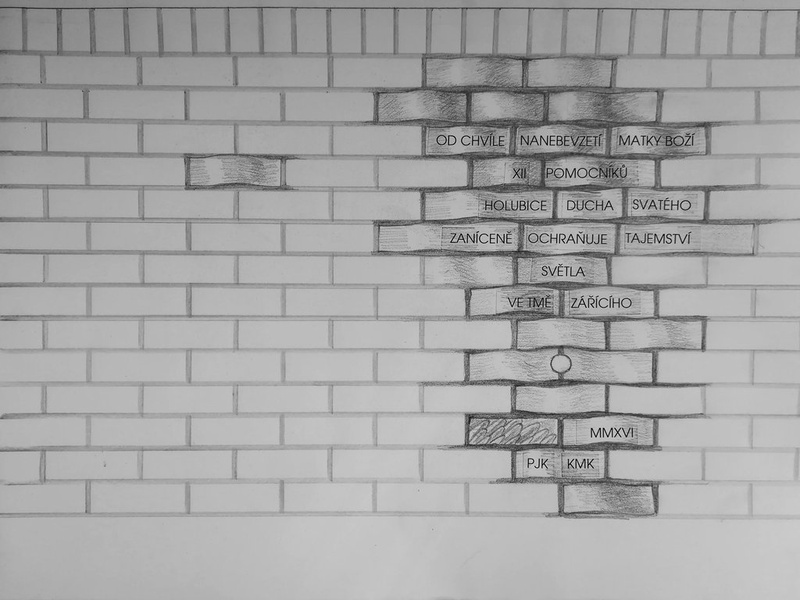 OD CHVÍLE NANEBEVZETÍ MATKY BOŽÍ
XII POMOCNÍKŮ
HOLUBICE DUCHA SVATÉHO
ZANÍCENĚ OCHRAŇUJE TAJEMSTVÍ
SVĚTLA
VE TMĚ ZÁŘÍCÍHO
MMXVI
PJK KMK